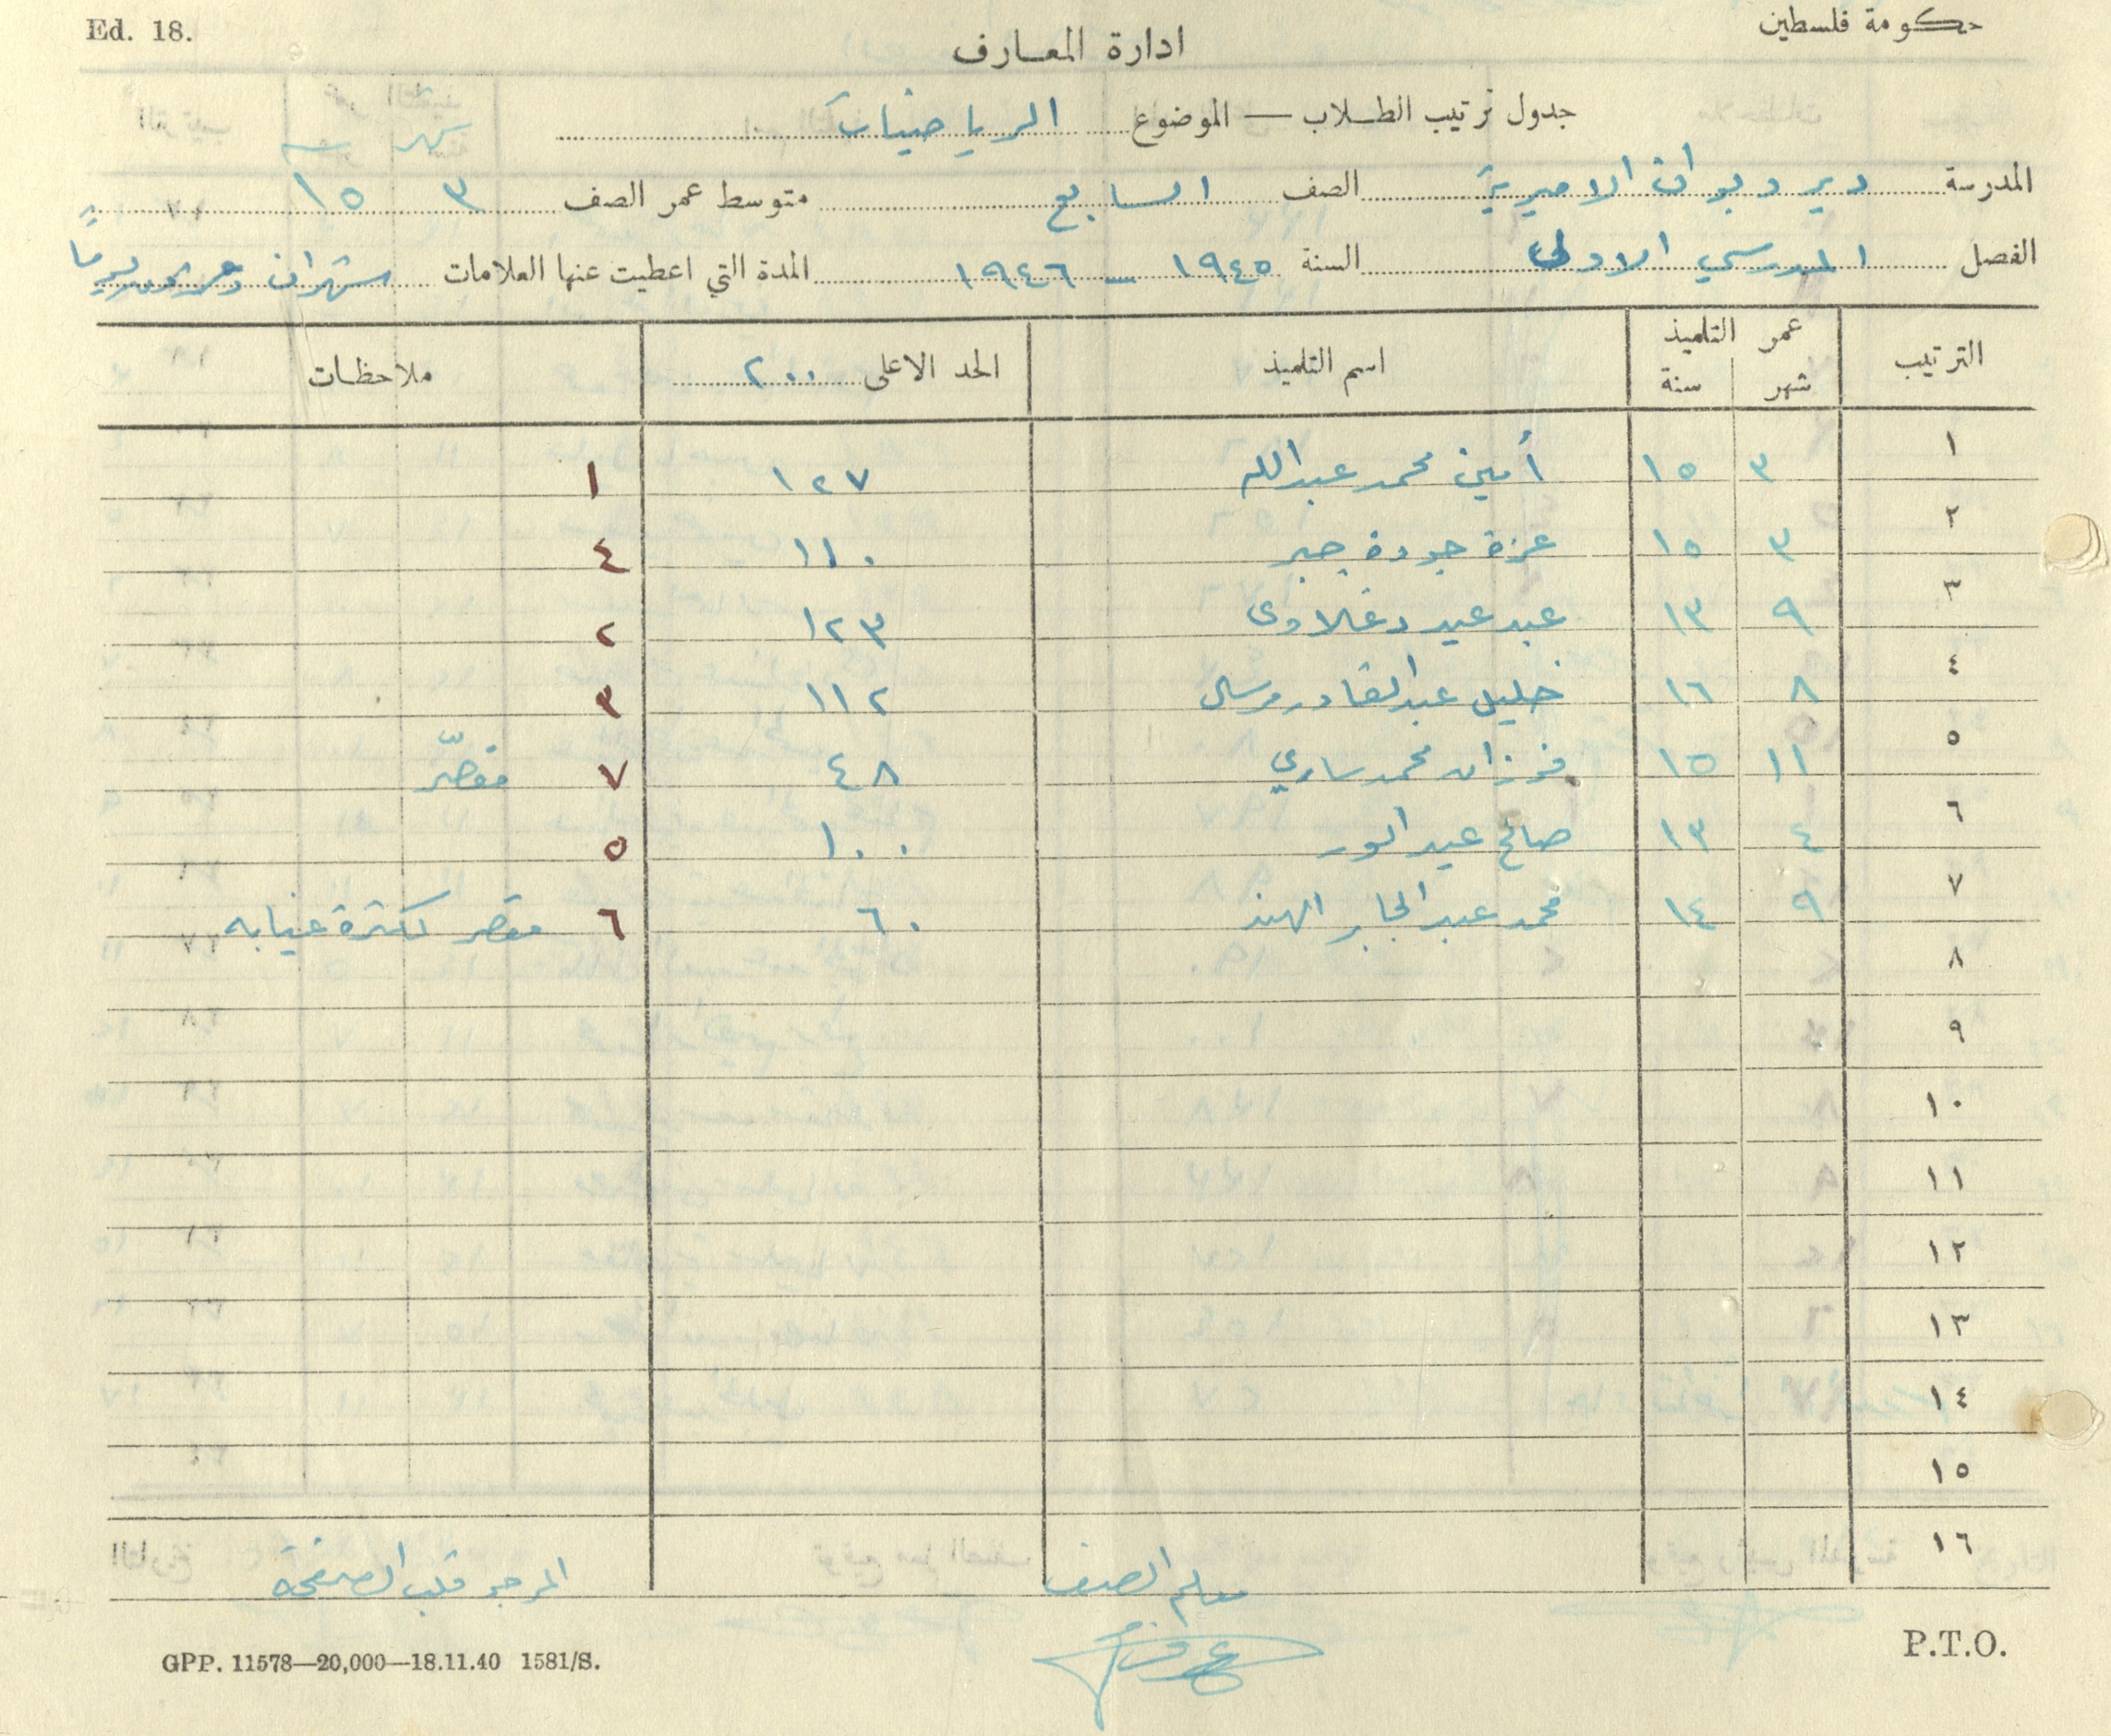 Ed. 18.
حكومة فلسطين
ادارة المعارف
جدول ترتيب الطلاب — الموضوع الرياضيات
المدرسة دير دبوان الاميرية الصف السابع متوسط عمر الصف ٣ شهر ١٥ سنة
الفصل المدرسي الاول السنة ١٩٤٥ — ١٩٤٦ المدة التي اعطيت عنها العلامات شهران وعشرون يوماً
الترتيب عمر التلميذ شهر سنة اسم التلميذ الحد الاعلى ٢٠٠ ملاحظات
١ ٣ ١٥ أمين محمد عبدالله ١٢٧ ١
٢ ٣ ١٥ عزة جودة جبر ١١٠ ٤
٣ ٩ ١٣ عبد عيد دغلاوى ١٢٣ ٢
٤ ٨ ١٦ خليل عبدالقادر مرسال ١١٢ ٣
٥ ١١ ١٥ فوزان محمد ساري ٤٨ ٧ مقصّر
٦ ٤ ١٣ صالح عيد ١٠٠ ٥
٧ ٩ ١٤ محمد عبد الجابر الهند ٦٠ ٦ مقصر لكثرة غيابه
٨
٩
١٠
١١
١٢
١٣
١٤
١٥
١٦
معلم الصف
المرجو قلب الصفحة
GPP. 11578—20,000—18.11.40 1581/S.
P.T.O.